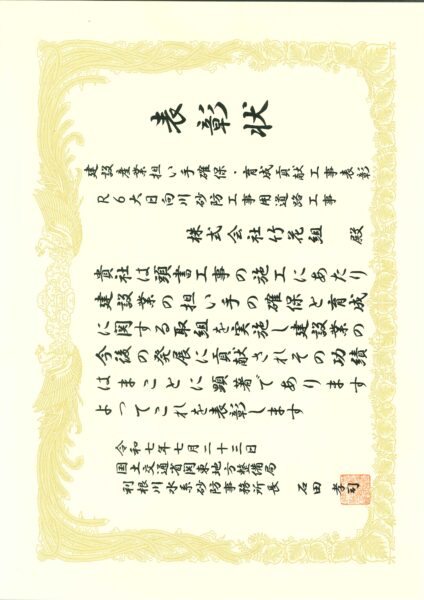 表彰状
建設産業担い手確保・育成貢献工事表彰
R6大日向川砂防工事用道路工事
株式会社竹花組 殿
貴社は頭書工事の施工にあたり
建設業の担い手の確保と育成
に関する取組を実施し建設業の
今後の発展に貢献されその功績
はまことに顕著であります
よってこれを表彰します
令和七年七月二十三日
国土交通省関東地方整備局
利根川水系砂防事務所長 石田 孝司